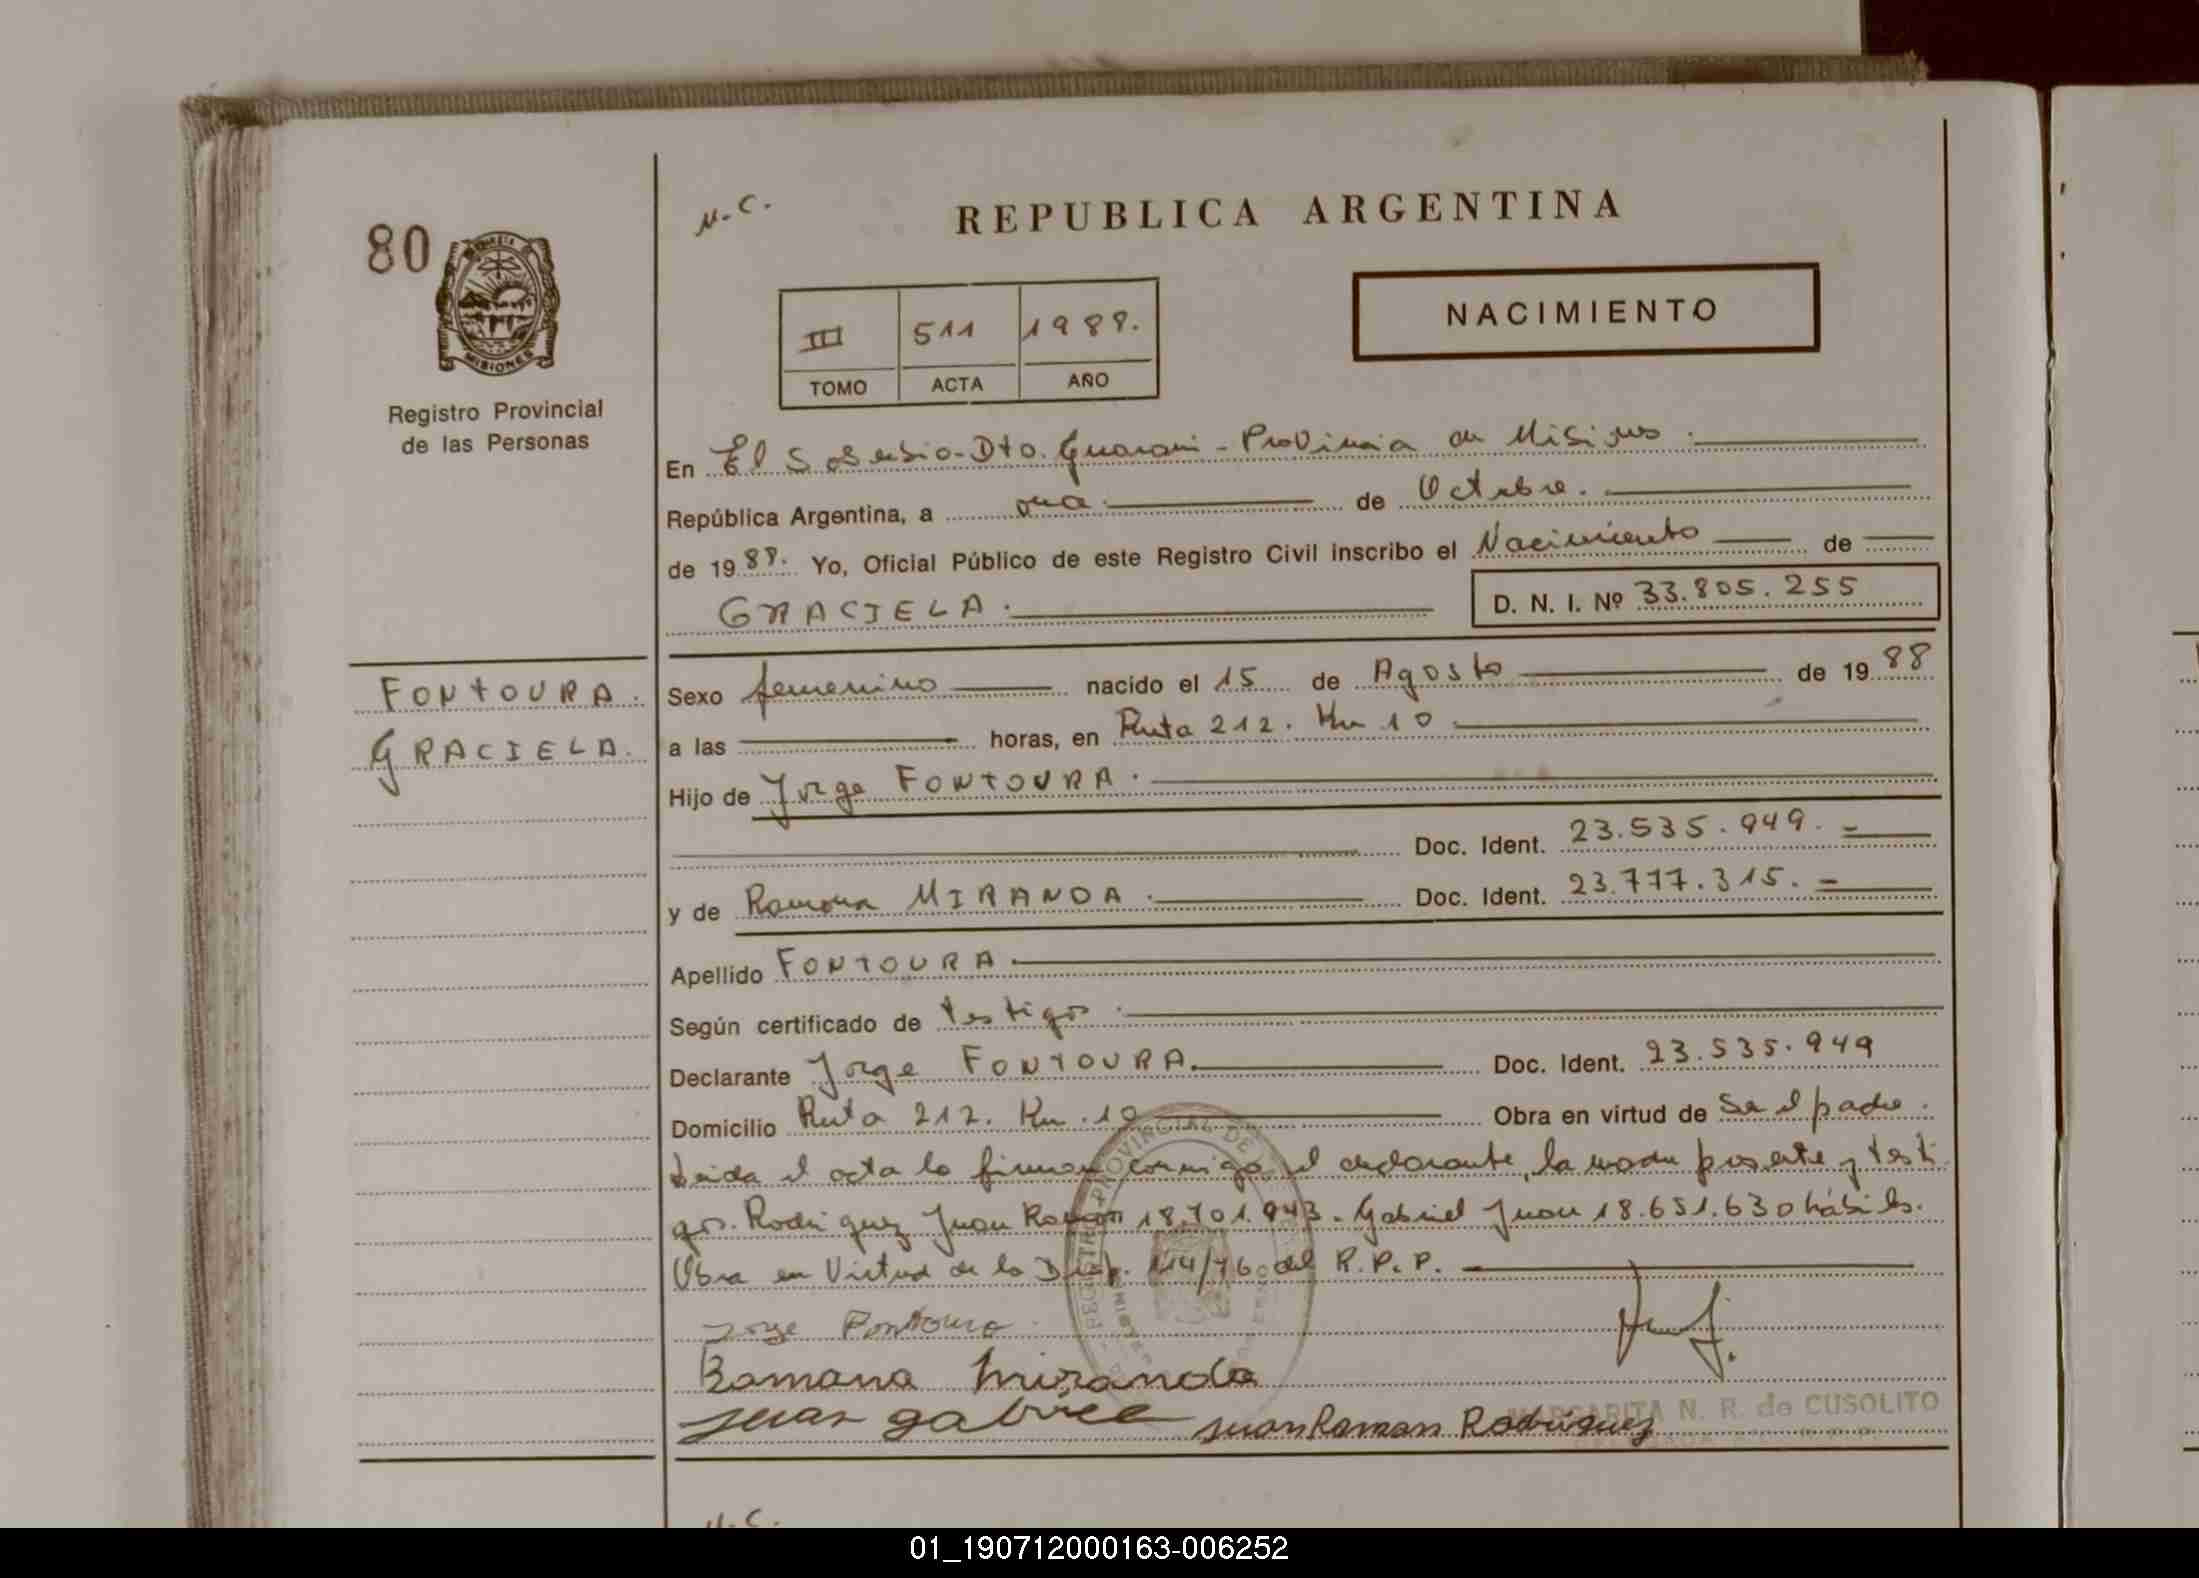 N.C.
REPUBLICA ARGENTINA
80
NACIMIENTO
III 511 1988.
TOMO ACTA AÑO
MISIONES
Registro Provincial
de las Personas
En El Soberbio-Dto. Guarani - Provincia de Misiones.
República Argentina, a una de Octubre.
de 1988. Yo, Oficial Público de este Registro Civil inscribo el Nacimiento de
GRACIELA. D. N. I. Nº 33.805.255
FONTOURA.
GRACIELA.
Sexo femenino nacido el 15 de Agosto de 1988
a las horas, en Ruta 212. Km 10
Hijo de Jorge FONTOURA.
Doc. Ident. 23.535.949.-
y de Ramona MIRANDA. Doc. Ident. 23.777.315.-
Apellido FONTOURA.
Según certificado de testigos.
Declarante Jorge FONTOURA. Doc. Ident. 23.535.949
Domicilio Ruta 212. Km. 10 Obra en virtud de Ser el padre.
Leida el acta la firman conmigo el declarante, la madre presente y testi
gos. Rodriguez Juan Ramon 18.701.943. Gabriel Juan 18.651.630 hábiles.
Obra en Virtud de la Disp. 114/76 del R.P.P.
Jorge Fontoura
Ramona Miranda
Juan gabriel Juan Raman Rodriguez
MARGARITA N. R. de CUSOLITO
N.C.
01_190712000163-006252